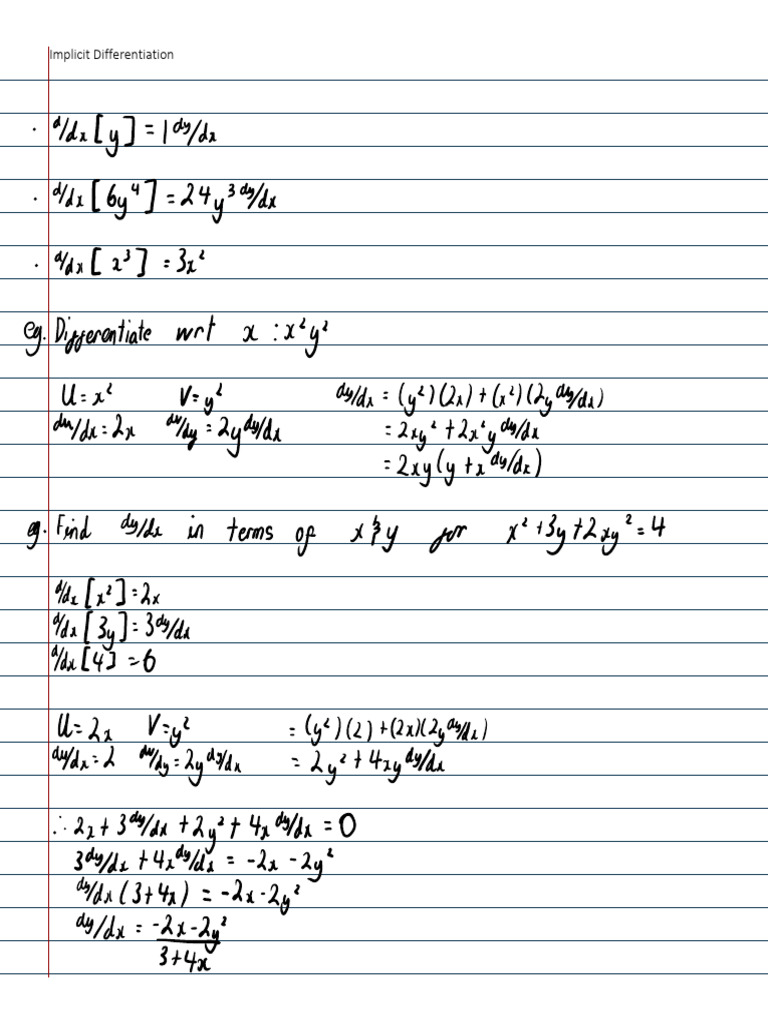 Implicit Differentiation
· d/dx [y] = 1 dy/dx
· d/dx [6y⁴] = 24y³ dy/dx
· d/dx [x³] = 3x²
eg. Differentiate wrt x : x²y²
U = x² V = y² dy/dx = (y²)(2x) + (x²)(2y dy/dx)
du/dx = 2x dv/dy = 2y dy/dx = 2xy² + 2x²y dy/dx
= 2xy(y + x dy/dx)
eg. Find dy/dx in terms of x & y for x² + 3y + 2xy² = 4
d/dx [x²] = 2x
d/dx [3y] = 3 dy/dx
d/dx [4] = 6
U = 2x V = y² = (y²)(2) + (2x)(2y dy/dx)
du/dx = 2 dv/dy = 2y dy/dx = 2y² + 4xy dy/dx
∴ 2x + 3 dy/dx + 2y² + 4x dy/dx = 0
3 dy/dx + 4x dy/dx = -2x - 2y²
dy/dx (3 + 4x) = -2x - 2y²
dy/dx = -2x - 2y²
3 + 4x